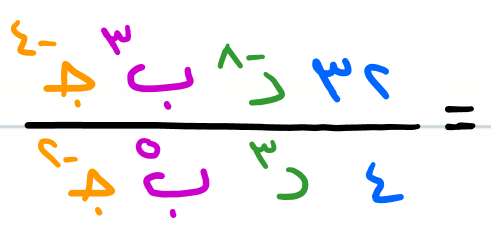 = ٣٢ د^-٨ ب^٣ جـ^-٤
٤ د^٣ ب^٥ جـ^-٢